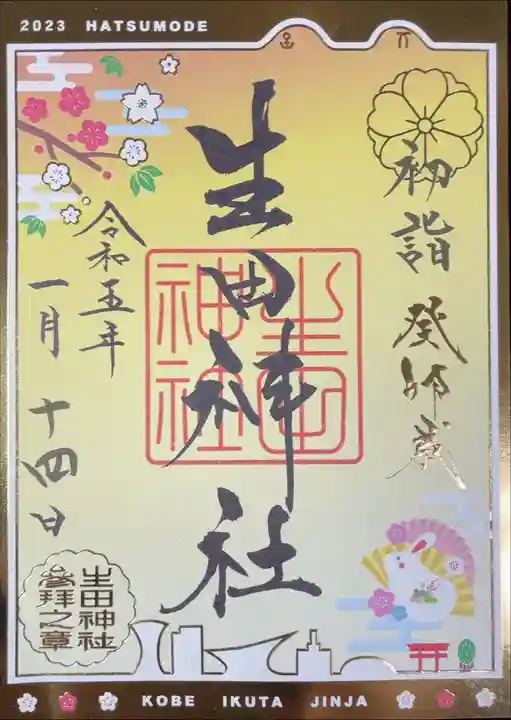 2023 HATSUMODE
初詣 癸卯歳
生田神社
生田神社
令和五年
一月十四日
生田神社
参拝之章
KOBE IKUTA JINJA